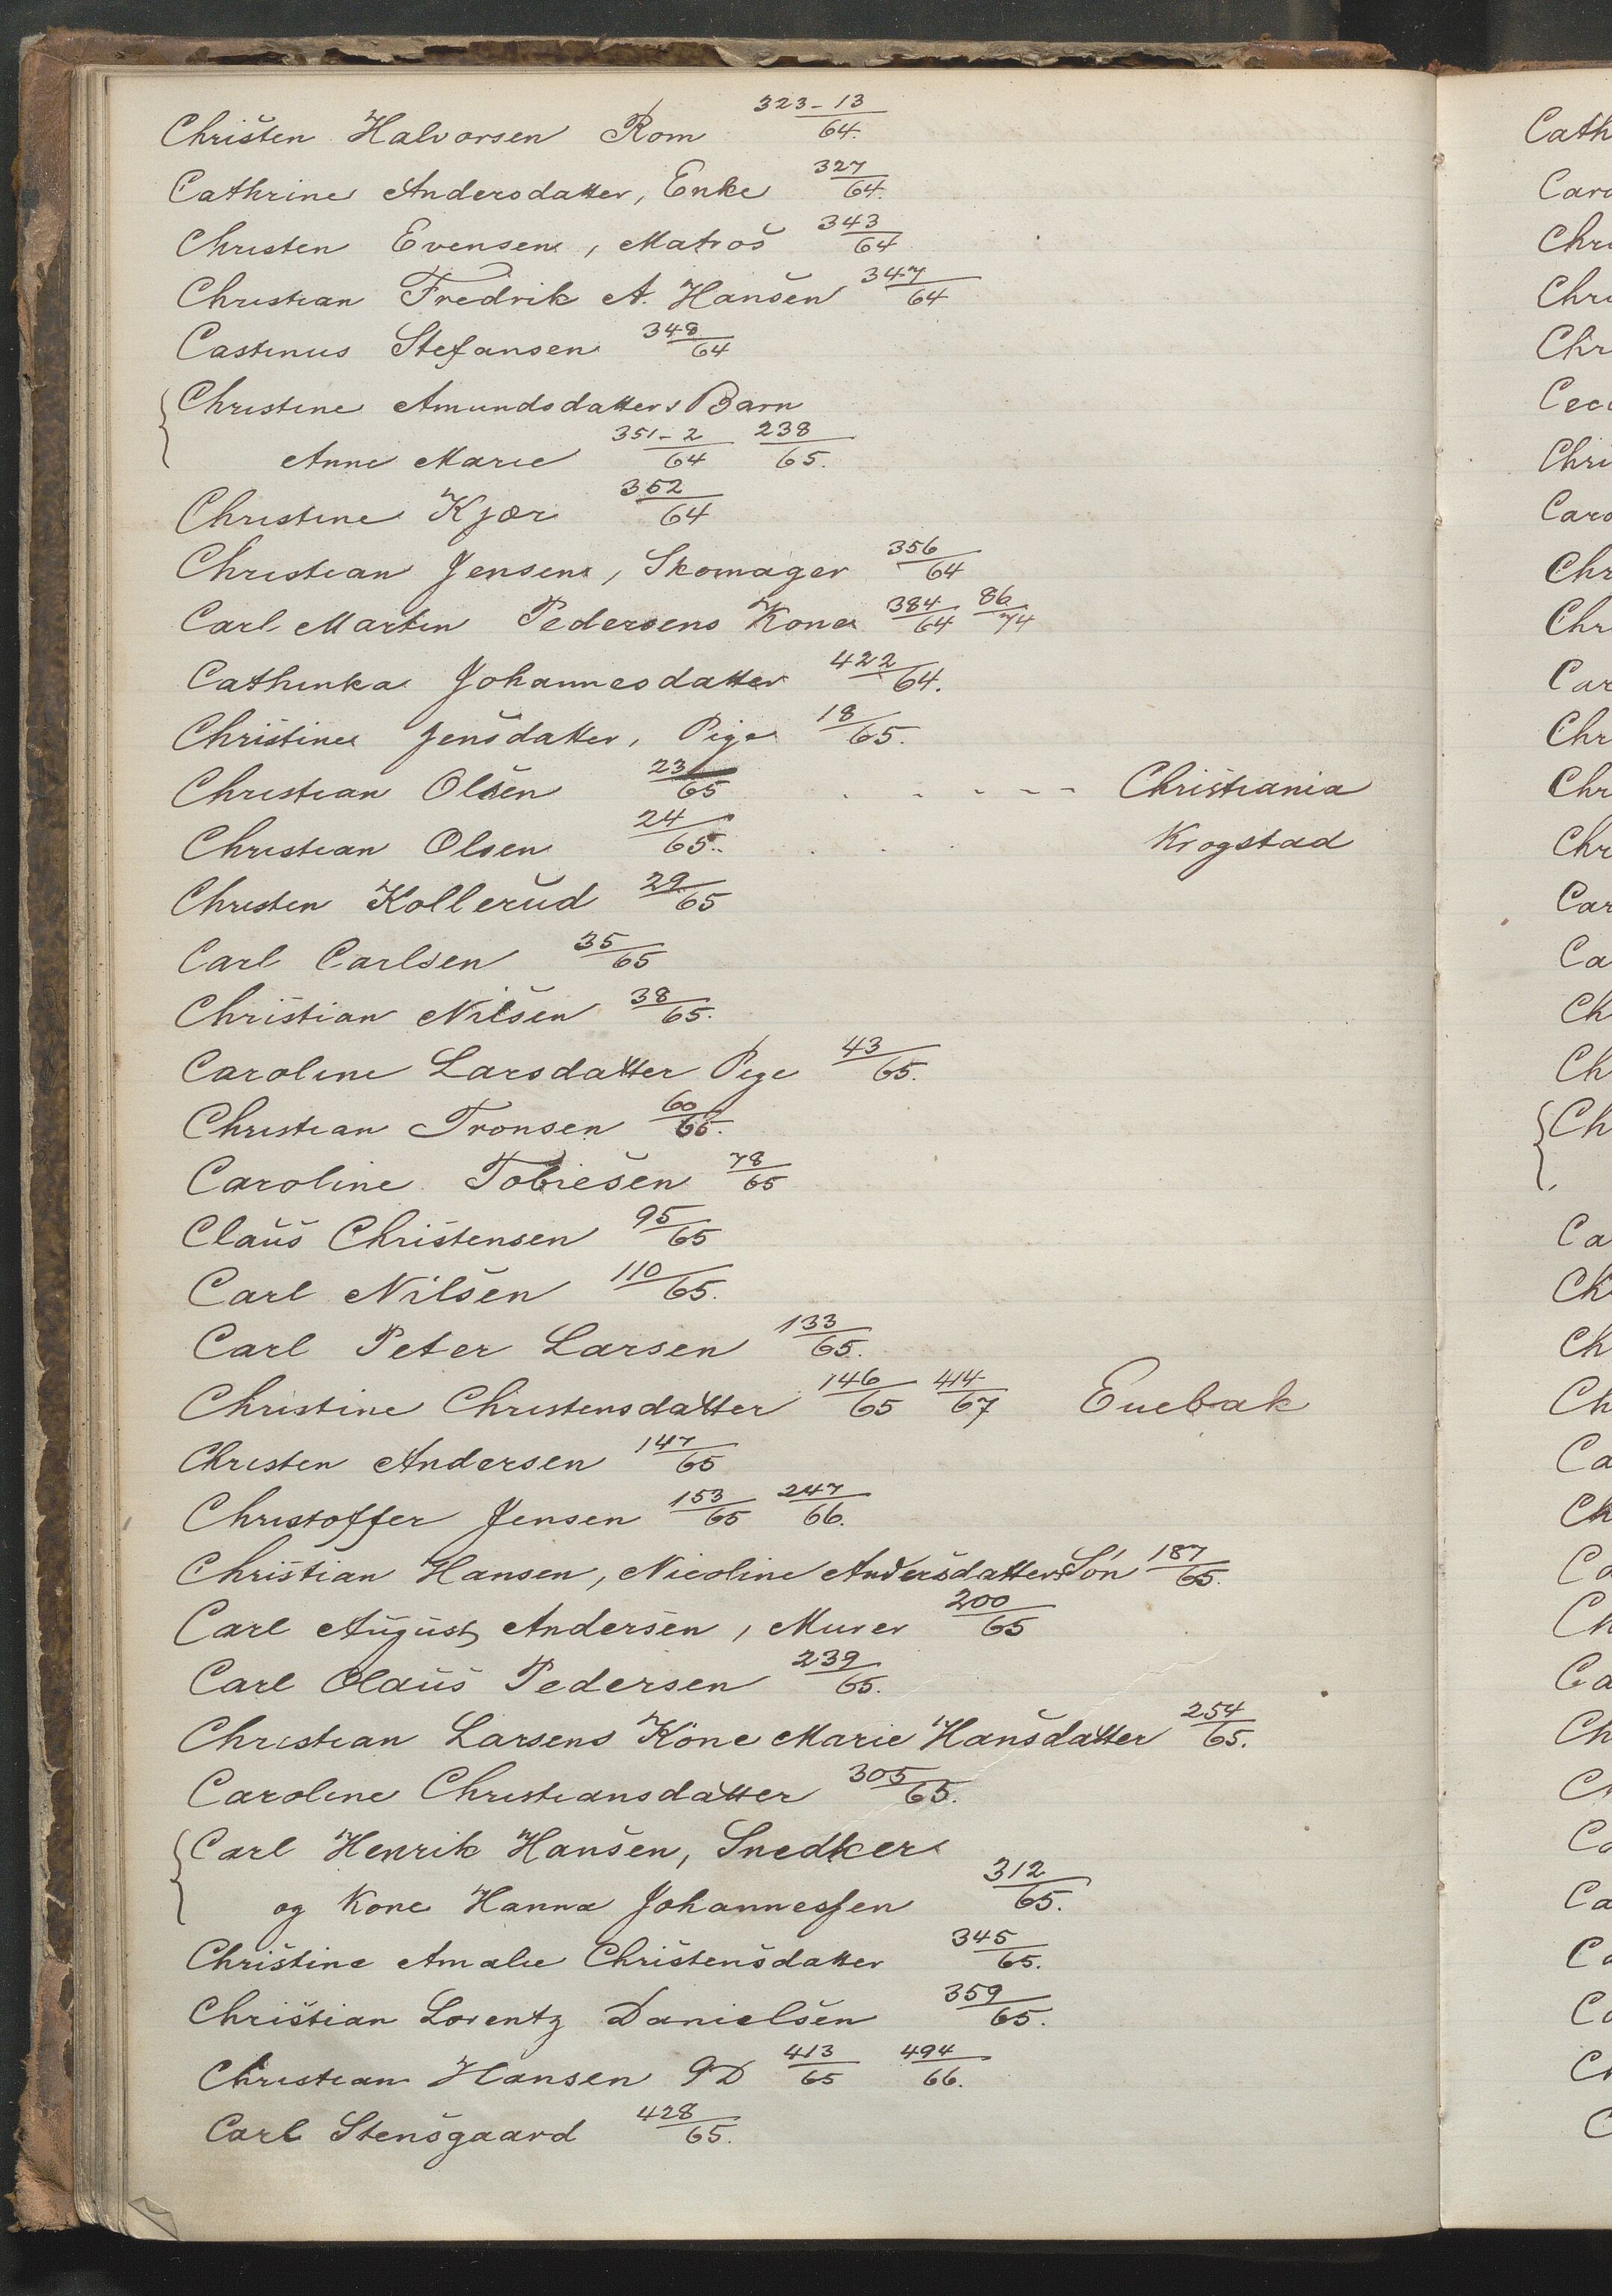 Christen Halvorsen Rom 323-13/64.
Cathrine Andersdatter, Enke 327/64.
Christen Evensen, Matros 343/64
Christian Fredrik A. Hansen 347/64
Castinus Stefansen 348/64
Christine Amundsdatters Barn
Anne Marie 351-2/64 238/65.
Christine Kjær 352/64
Christian Jensen, Skomager 356/64
Carl Martin Pedersens Kone 384/64 86/74
Cathinka Johannesdatter 422/64.
Christine Jensdatter, Pige 18/65.
Christian Olsen 23/65 - - - - - Christiania
Christian Olsen 24/65. . . . Krogstad
Christen Kollerud 29/65
Carl Carlsen 35/65
Christian Nilsen 38/65.
Caroline Larsdatter Pige 43/65.
Christian Tronsen 60/65.
Caroline Tobiesen 78/65
Claus Christensen 95/65
Carl Nilsen 110/65.
Carl Peter Larsen 133/65.
Christine Christensdatter 146/65 414/67 Enebak
Christen Andersen 147/65
Christoffer Jensen 153/65 247/66.
Christian Hansen, Nicoline Andersdatters Søn 187/65.
Carl August Andersen, Murer 200/65
Carl Olaus Pedersen 239/65.
Christian Larsens Kone Marie Hansdatter 254/65.
Caroline Christiansdatter 305/65.
Carl Henrik Hansen, Snedker
og Kone Hanna Johannessen 312/65.
Christine Amalie Christensdatter 345/65.
Christian Lorentz Danielsen 359/65.
Christian Hansen 413/65 494/66.
Carl Stensgaard 428/65.